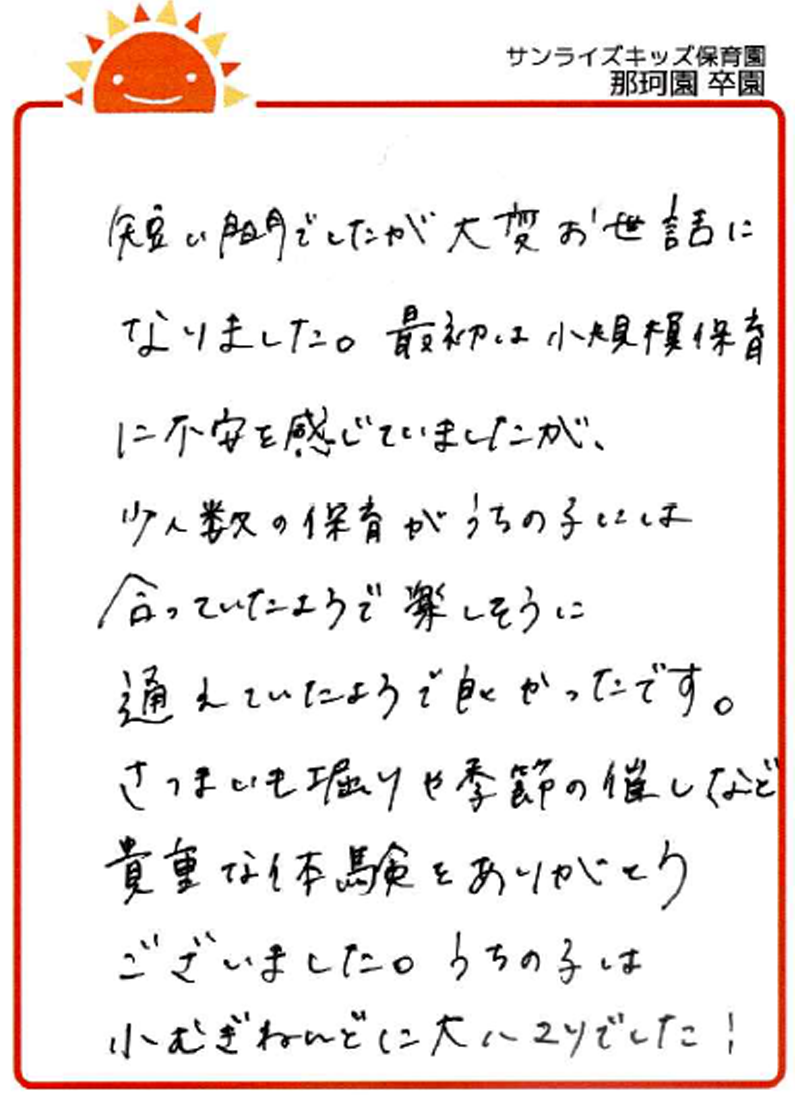 サンライズキッズ保育園
那珂園 卒園
短い間でしたが大変お世話に
なりました。最初は小規模保育
に不安を感じていましたが、
少人数の保育がうちの子には
合っていたようで楽しそうに
通えていたようで良かったです。
さつまいも堀りや季節の催しなど
貴重な体験をありがとう
ございました。うちの子は
小むぎねんどに大ハマリでした!